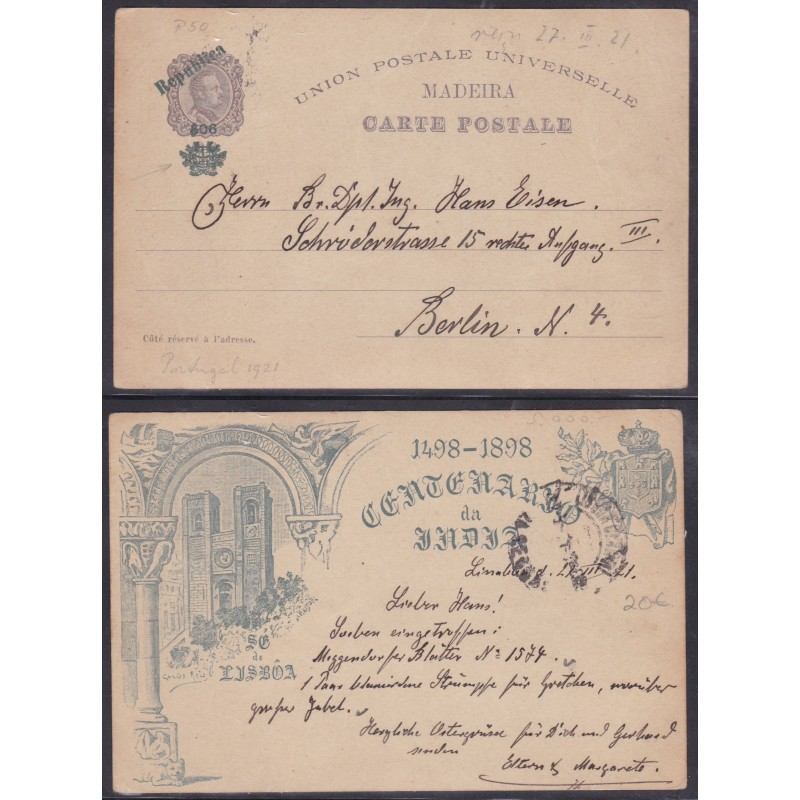 P 50
27. III. 21.
Republica
UNION POSTALE UNIVERSELLE
MADEIRA
CARTE POSTALE
Herrn Br. Dpl. Ing. Hans Eisen.
Schröderstrasse 15 rechter Aufgang. III.
Berlin. N. 4.
Côté réservé à l'adresse.
Portugal 1921
5.000.-
1498-1898
CENTENARIO
da
INDIA
Lissabon d. 21. III. 21.
20€
Lieber Hans!
Soeben eingetroffen:
Meggendorfer Blätter No 1574
1 Paar Strümpfe für Gretchen, worüber
grosser Jubel.
Herzliche Ostergrüsse für Dich und Gerhard
senden
Eltern & Margarete.
SÉ
de
LISBÔA